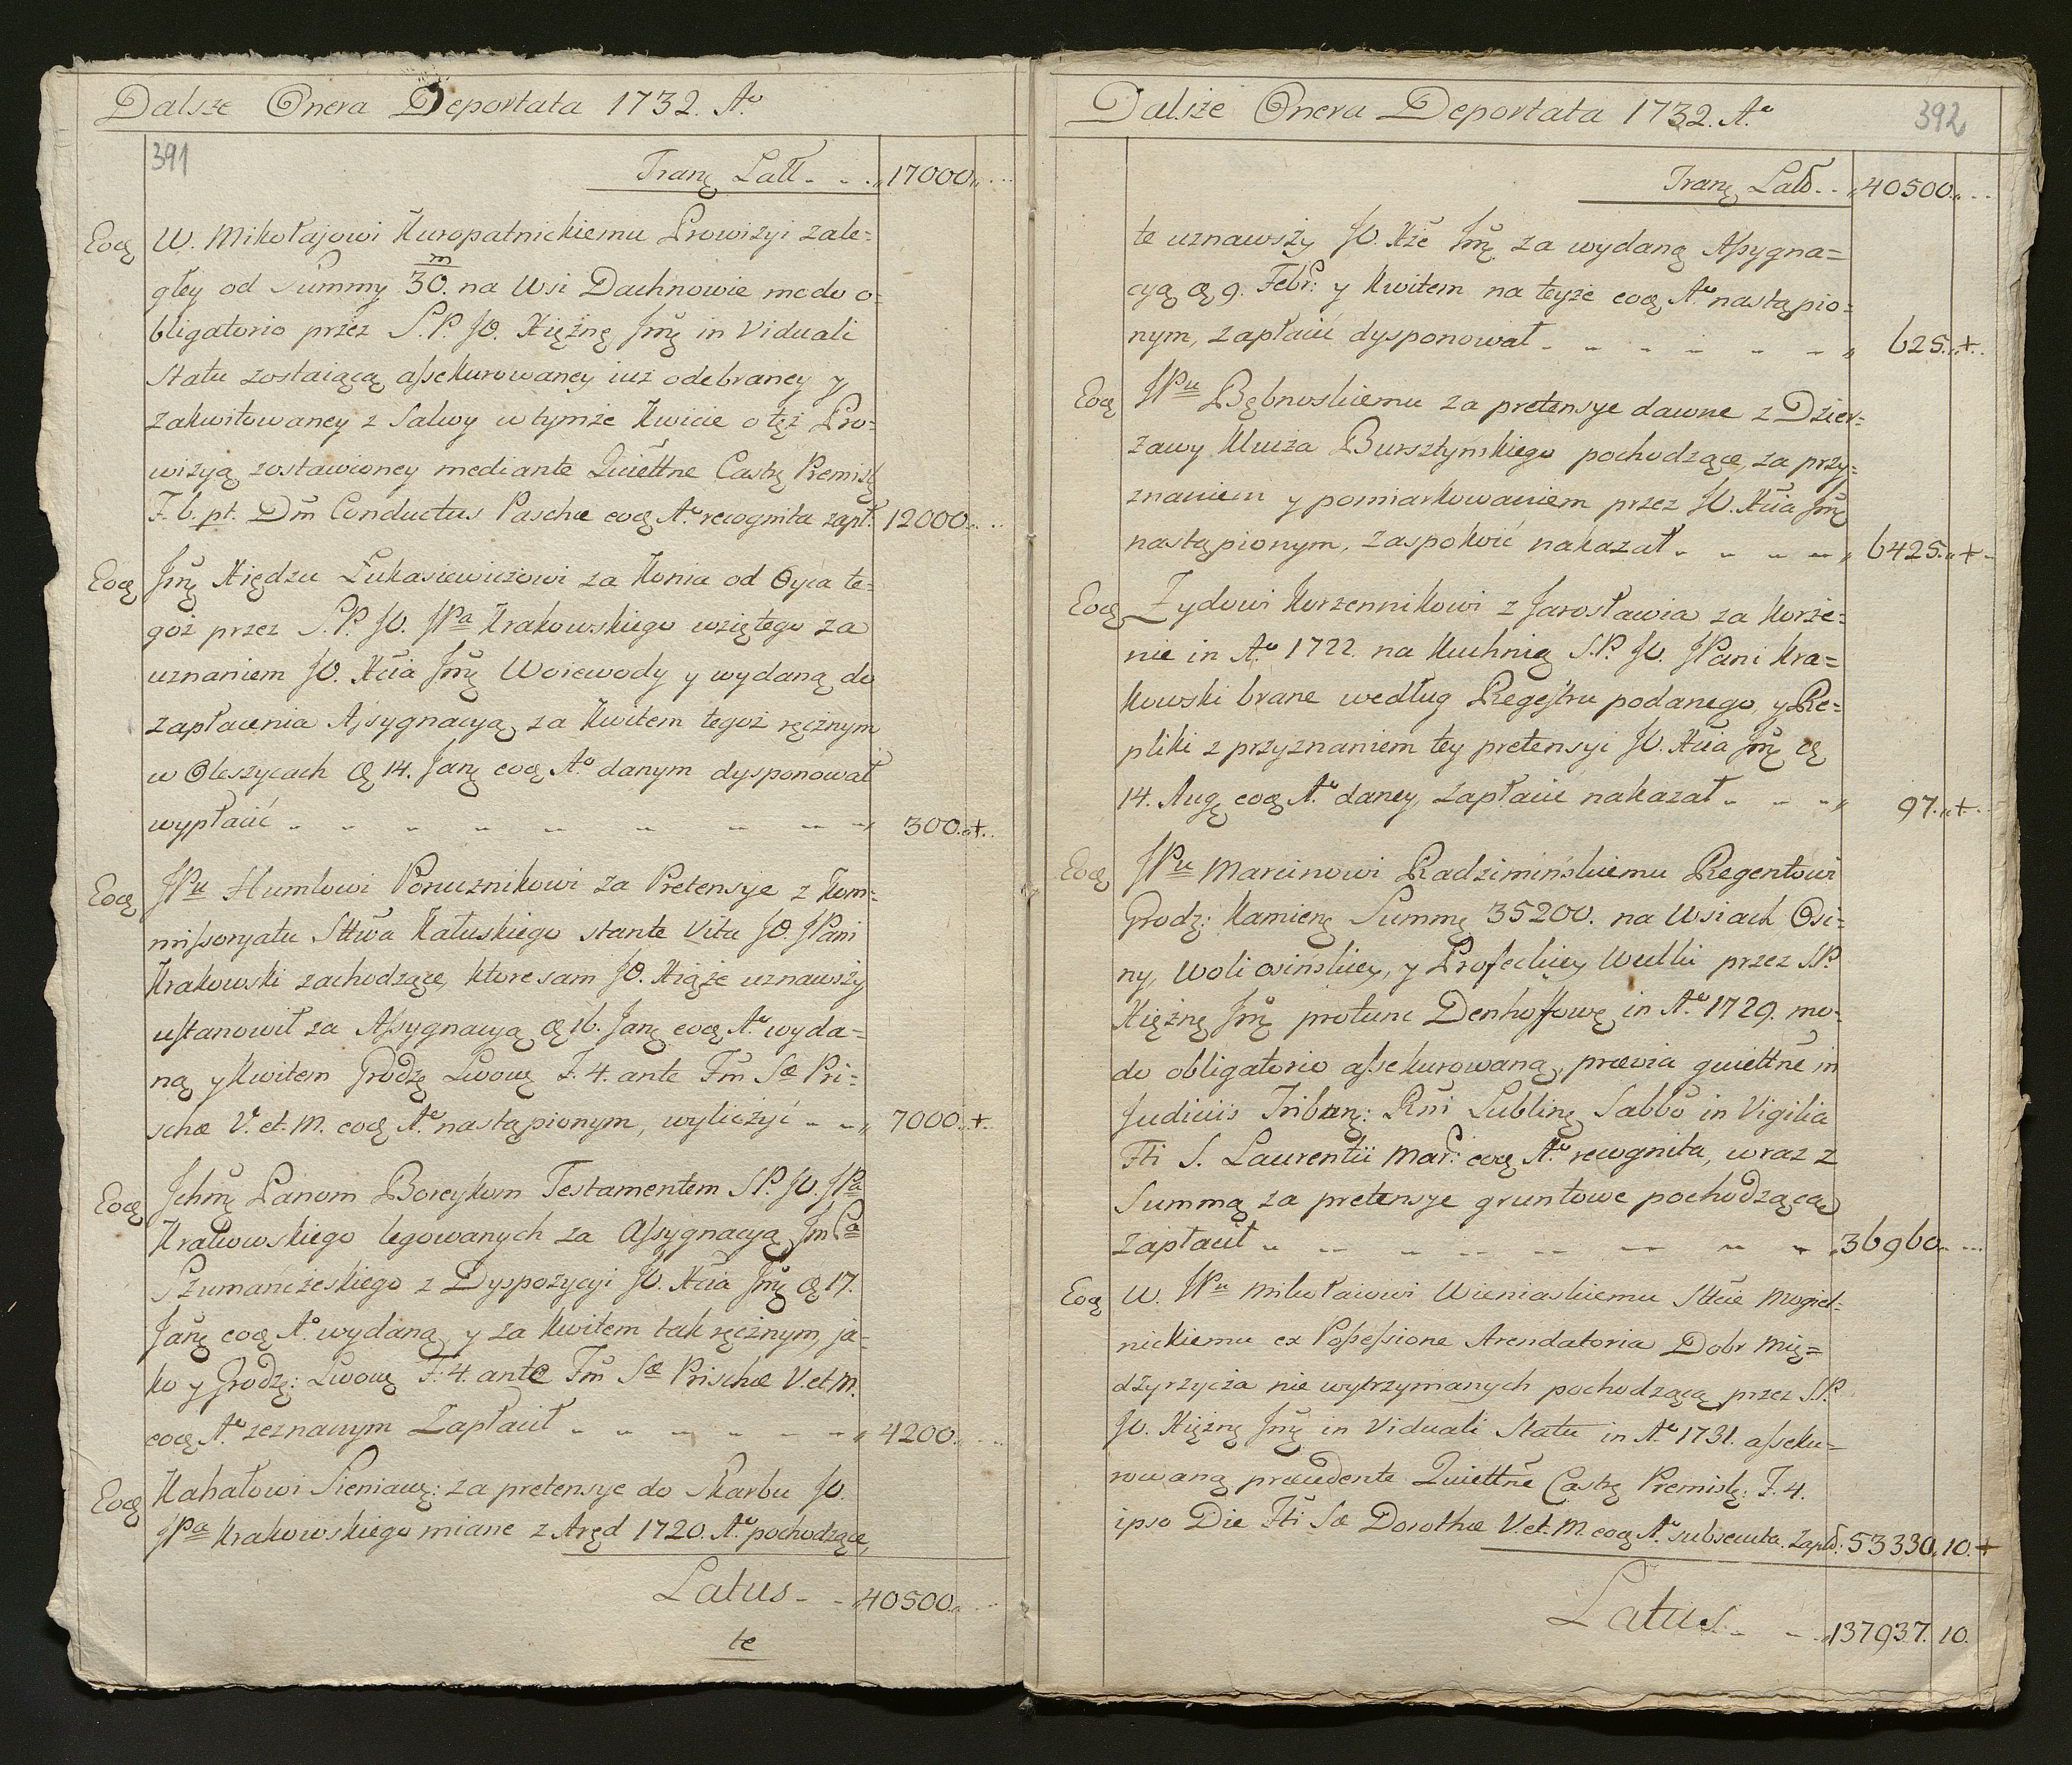 Dalsze Onera Deportata 1732. Aº
391
Tranſ Latt 17000
Eoq W. Mikołajowi Kuropatnickiemu Prowizyi zale=
m
głey od Summy 30. na Wsi Dachnowie modo o-
bligatorio przez S.P. JO. Xiężnę Jmę in Viduali
Statu zostaiącą assekurowaney iuż odebraney y
zakwitowaney z Salwy w tymże Kwicie o tęż Pro-
wizyą zostawioney mediante Quiettne Castr Premisl
F. 6. pt. Dm Conductus Paschæ eoq Aº recognita zapł. 12000
Eoq Jmę Xiędzu Łukasiewiczowi za Konia od Oyca te-
goż przez S.P. JO. JPa Krakowskiego wziętego za
uznaniem JO. Xcia Jmę Woiewody y wydaną do
zapłacenia Assygnacyą za Kwitem tegoż ręcznym
w Oleszycach 14. Jan eoq Aº danym dysponował
wypłacić 300. +
Eoq JPu Humlowi Porucznikowi za Pretensye z Kom-
missoryatu Sttwa Kałuskiego stante Vita JO. JPani
Krakowski zachodzące, ktore sam JO. Xiąże uznawszy
ustanowił za Assygnacyą 16. Jan eoq Aº wyda=
ną y Kwitem Grodz Lwow F. 4. ante Fm Sæ Pri=
schæ V. et. M. eoq Aº nastąpionym, wyliczyć 7000. +
Eoq Jchmę Panom Boreykom Testamentem SP. JO. JPa
Krakowskiego legowanych za Assygnacyą JmPa
Szumanczeskiego z Dyspozycyi JO. Xcia Jmę 17.
Jan eoq Aº wydaną y za Kwitem tak ręcznym, ja-
ko y Grodz: Lwow F. 4. ante Fm Sæ Prischæ V. et. M.
eoq Aº zeznanym Zapłacił 4200
Eoq Kahałowi Sieniaw: za pretensye do Skarbu JO.
JPa Krakowskiego miane z Aręd 1720. Aº pochodzące,
Latus 40500
te
Dalsze Onera Deportata 1732. Aº
392
Tranſ Latt 40500
te uznawszy JO. Xże Jmę za wydaną Assygna=
cyą 9. Febr: y Kwitem na teyże eoq Aº nastąpio=
nym, zapłacić dysponował 625. +
Eoq JPu Bębnoskiemu za pretensye dawne z Dzier=
żawy Klucza Bursztynskiego pochodzące, za przy=
znaniem y pomiarkowaniem przez JO. Xcia Jmę
nastąpionym, zaspokoić nakazał 6425. +
Eoq Zydowi Korzennikowi z Jarosławia za Korze=
nie in Aº 1722. na Kuchnią S.P. JO. JPani Kra=
kowski brane według Regestru podanego, y Re=
pliki z przyznaniem tey pretensyi JO. Xcia Jmę
14. Aug eoq Aº daney, zapłacić nakazał 97. +
Eoq JPu Marcinowi Radzimińskiemu Regentowi
Grodz: Kamien Summę 35200. na Wsiach Osi=
ny, Woli osińskiey, y Profeckiey Wulki przez SP.
Xiężnę Jmę protunc Denhoffowę in Aº 1729. mo-
do obligatorio assekurowaną, prævia quiettne in
Judiciis Tribun: Rni Lublin Sabbo in Vigilia
Fti S. Laurentii Mar: eoq Aº recognita, wraz z
Summą za pretensye gruntowe pochodzącą
zapłacił 36960
Eoq W. JPu Mikołaiowi Wieniaskiemu Sttcie Mogiel=
nickiemu ex Possessione Arendatoria Dobr Mię=
dzyrzycza nie wytrzymanych pochodzącą przez SP.
JO. Xiężnę Jmę in Viduali Statu in Aº 1731. asseku=
rowaną præcedente Quiettne Castr Premisl: F. 4.
ipso Die Fti Sæ Dorothæ V. et. M. eoq Aº subsecuta. Zapłł: 53330. 10. +
Latus 137937. 10.